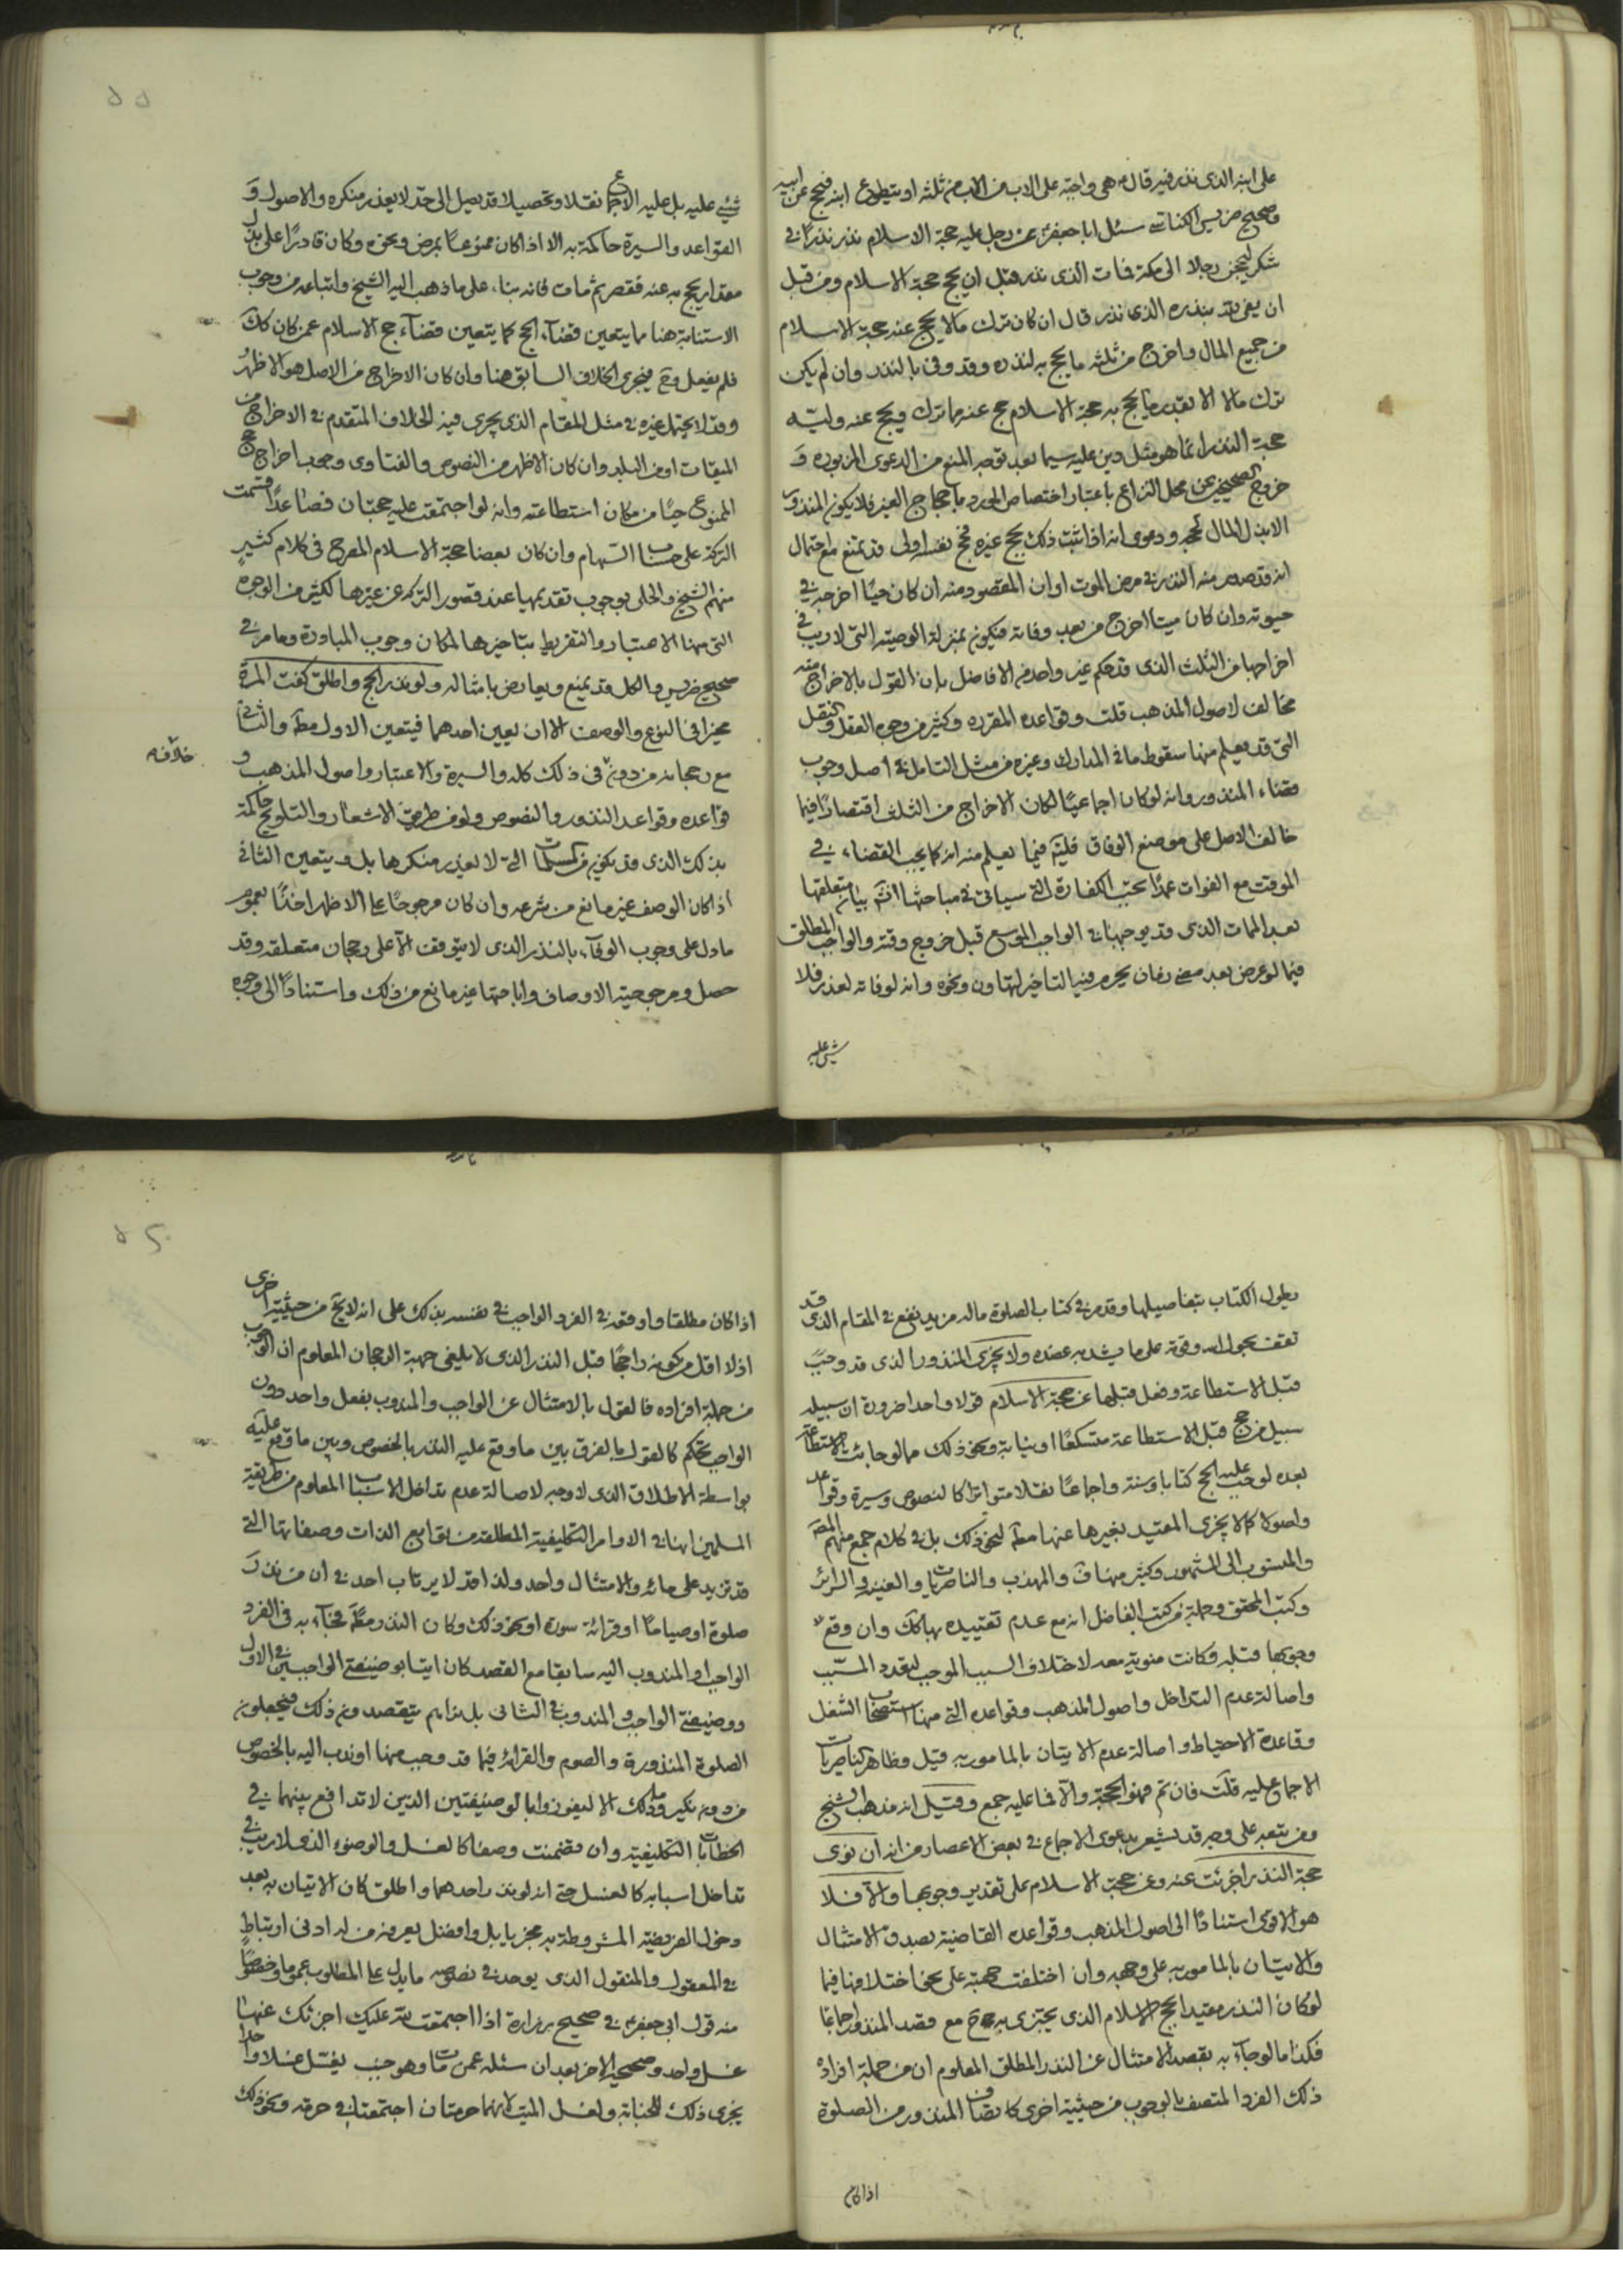 على ابنه الذى نذر فيه قال هى واجبة على الاب من ثلثه او يتطوع ابنه فيحج عن ابيه
وصحيح ضريس الكناسى سئل ابا جعفر عن رجل عليه حجة الاسلام نذر نذرًا فى
شكر ليحجن رجلا الى مكة فمات الذى نذر قبل ان يحج حجة الاسلام ومن قبل
ان يفى لله بنذره الذى نذر قال ان كان ترك مالا يحج عنه حجة الاسلام
من جميع المال واخرج من ثلثه ما يحج به لنذره وقد وفى بالنذر وان لم يكن
ترك مالا الا بقدر ما يحج به حجة الاسلام حج عنه مما ترك ويحج عنه وليه
حجة النذر انما هو مثل دين عليه سيما بعد توجه المنع من الدعوى المزبوره و
خروج الصحيحين عن محل النزاع باعتبار اختصاص المورد باحجاج الغير فلا يكون المنذور
الا بذل المال لحجه ودعوى انه اذا ثبت ذلك بحج غيره فحج نفسه اولى قد يمنع مع احتمال
انه قد صدر منه النذر فى مرض الموت او ان المقصود منه ان كان حيًا اخرجه فى
حيوته وان كان ميتا اخرج من بعد وفاته فيكون بمنزلة الوصية التى لا ريب فى
اخراجها من الثلث الذى قد حكم غير واحد من الافاضل بان القول بالاخراج منه
مخالف لاصول المذهب قلت وقواعده المقرره وكثير من وجوه العقل والنقل
التى قد يعلم منها سقوط ما فى المدارك وغيره من مثل التامل فى اصل وجوب
قضاء المنذور وانه لو كان اجماعيًا لكان الاخراج من الثلث اقتصارًا فيما
خالف الاصل على موضع الوفاق فليتم فيما يعلم منه انه كما يجب القضاء فى
الموقت مع الفوات عمدًا تجب الكفارة التى سياتى فى مباحثها انش بيان متعلقها
بعد الممات الذى قد يوجبها فى الواجب الموسع قبل خروج وقته والواجب المطلق
فيما لو عرض بعد مضى زمان يحرم فيه التاخير لتهاون ونحوه وانه لو فاته لعذر فلا
شيئ عليه
شيئ عليه بل عليه الاجماع نقلا وتحصيلا قد يصل الى حد لا يعذر منكره والاصول و
القواعد والسيرة حاكمة به الا اذا كان ممنوعًا بمرض ونحوه وكان قادرًا على بذل
مقدار يحج به عنه فقصر ثم مات فانه بناء على ما ذهب اليه الشيخ واتباعه من وجوب
الاستنابة هنا مما يتعين قضاء الحج كما يتعين قضاء حج الاسلام عمن كان كك
فلم يفعل وح فيجرى الخلاف السابق هنا وان كان الاخراج من الاصل هو الاظهر
وقد لا يحتمل غيره فى مثل المقام الذى يجرى فيه الخلاف المتقدم فى الاخراج من
الميقات او من البلد وان كان الاظهر من النصوص والفتاوى وجوب اخراج حج
الممنوع حيًا من مكان استطاعته وانه لو اجتمعت عليه حجتان فصاعدًا قسمت
التركة على حساب السهام وان كان بعضها حجة الاسلام المصرح فى كلام كثير
منهم الشيخ والحلى بوجوب تقديمها عند قصور التركه عن غيرها لكثير من الوجوه
التى منها الاعتبار والتفريط بتاخيرها لمكان وجوب المبادرة وما مر فى
صحيح ضريس والكل قد يمنع ويعارض بامثاله ولو نذر الحج واطلق كفت المرة
مخيرا فى النوع والوصف الا ان يعين احدهما فيتعين الاول مطه والثانى
مع رجحانه من دون فى ذلك كله والسيرة والاعتبار واصول المذهب و
خلافه
قواعده وقواعد النذور والنصوص ولو من طريق الاشعار والتلويح حاكمة
بذلك الذى قد يكون من المسلمات التى لا يعذر منكرها بل ويتعين الثانى
اذا كان الوصف غير مانع من شرعه وان كان مرجوحًا على الاظهر اخذًا بعموم
ما دل على وجوب الوفاء بالنذر الذى لا يتوقف الا على رجحان متعلقه وقد
حصل ومرجوحية الاوصاف واباحتها غير مانع من ذلك واستنادًا الى وجوه
يطول الكتاب بتفاصيلها وقد مر فى كتاب الصلوة ما له مزيد نفع فى المقام الذى قد
تقف بحول الله وقوته على ما يشد به عضده ولا يجزى المنذور الذى قد وجب
قبل الاستطاعة وفعل قبلها عن حجة الاسلام قولا واحدا ضرورة ان سبيله
سبيل من حج قبل الاستطاعة متسكعًا او نيابة ونحو ذلك مما لو جائت الاستطاعة
بعده لوجب عليه الحج كتابا وسنة واجماعًا نقلا متواترا كالنصوص وسيرة وقواعد
واصولا كما لا يجزى المقيد بغيرها عنها مطه لنحو ذلك بل فى كلام جمع منهم المصه
والمنسوب الى المشهور وكثير منها ف والمهذب والناصريات والغنيه والسرائر
وكتب المحقق وجملة من كتب الفاضل انه مع عدم تقييده بها كك وان وقع
وجوبها قبله وكانت منوية معه لاختلاف السبب الموجب لتعدد المسبب
واصالة عدم التداخل واصول المذهب وقواعده التى منها استصحاب الشغل
وقاعدة الاحتياط واصالة عدم الاتيان بالمامور به قيل وظاهر الناصريات
الاجماع عليه قلت فان تم فهو الحجة والا فما عليه جمع وقيل انه مذهب الشيخ
ومن يتبعه على وجه قد يشعر بدعوى الاجماع فى بعض الاعصار من انه ان نوى
حجة النذر اجزئت عنه وعن حجة الاسلام على تقدير وجوبها والا فلا
هو الاقوى استنادًا الى اصول المذهب وقواعده القاضية بصدق الامتثال
والاتيان بالمامور به على وجهه وان اختلفت جهته على نحو اختلافها فيما
لو كان النذر مقيدا بحج الاسلام الذى يجتزى به ح مع قصد المنذور اجماعًا
فكذا ما لو جاء به بقصد الامتثال عن النذر المطلق المعلوم ان من جملة افراده
ذلك الفرد المتصف بالوجوب من حيثية اخرى كاتصاف المنذور من الصلوة
اذا كان
اذا كان مطلقا واوقعه فى الفرد الواجب فى نفسه بذلك على انه لا يخ من حيثية اخرى
اذ لا اقل من كونه راجحًا قبل النذر الذى لا يلغى جهة الرجحان المعلوم ان الوجوب
من جملة افراده فالقول بالامتثال عن الواجب والمندوب بفعل واحد دون
الواجب تحكم كالقول بالفرق بين ما وقع عليه النذر بالخصوص وبين ما وقع عليه
بواسطة الاطلاق الذى لا وجه لاصالة عدم تداخل الاسباب المعلوم من طريقة
المسلمين انها فى الاوامر التكليفية المطلقة من توابع الذات وصفاتها التى
قد تزيد على مائة والامتثال واحد ولذا قد لا يرتاب احد فى ان من نذر
صلوة او صياما او قرائة سورة او نحو ذلك وكان النذر مطه فجاء به فى الفرد
الواجب او المندوب اليه سابقا مع القصد كان اتيا بوضيفتى الواجبين فى الاول
ووضيفتى الواجب والمندوب فى الثانى بل نراهم يتقصدون ذلك فيجعلون
الصلوة المنذورة والصوم والقرائة فيما قد وجب منها او ندب اليه بالخصوص
من دون نكير وما ذلك الا ليفوزوا بالوضيفتين الذين لا تدافع بينهما فى
الخطابات التكليفية وان تضمنت وصفا كالغسل والوضوء الذى لا ريب فى
تداخل اسبابه كالغسل حتى انه لو نذر احدهما واطلق كان الاتيان به بعد
دخول الفريضة المشروطة به مجزيا بل وافضل يعرفه من له ادنى ارتباط
فى المعقول والمنقول الذى يوجد فى نصوصه ما يدل على المطلوب عموما وخصوصًا
منه قول ابى جعفر فى صحيح زرارة اذا اجتمعت لله عليك اجزئك عنها
غسل واحد وصحيحه الاخر بعد ان سئله عمن مات وهو جنب يغسل غسلا واحدا
يجزى ذلك للجنابة ولغسل الميت لانهما حرمتان اجتمعتا فى حرمة ونحو ذلك